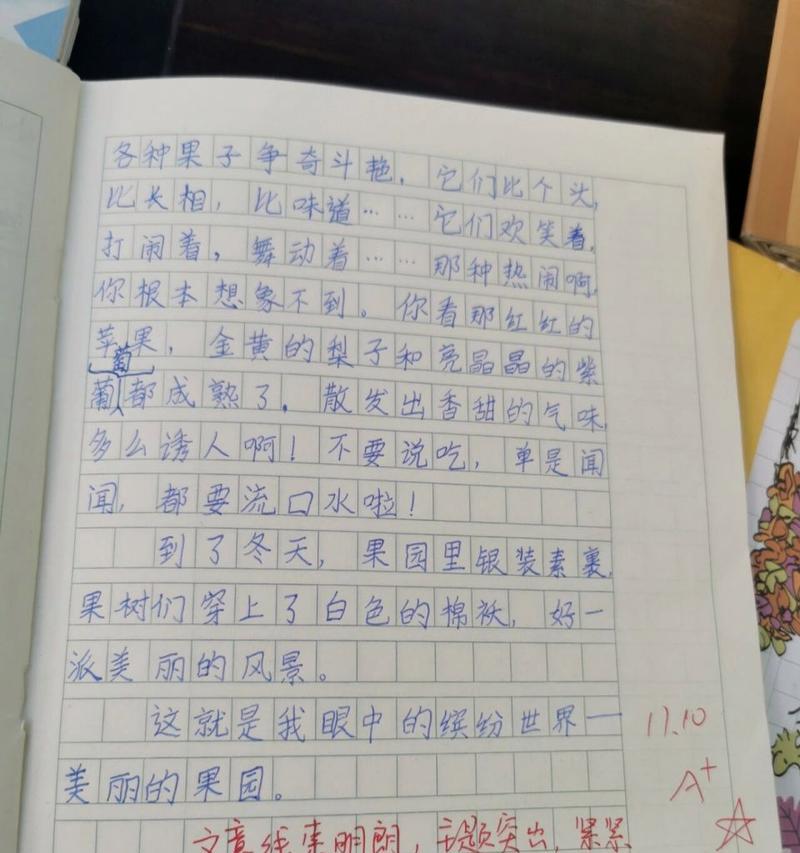 各种果子争奇斗艳，它们比个头，
比长相，比味道……它们欢笑着，
打闹着，舞动着……那种热闹啊，
你根本想象不到。你看那红红的
苹果，金黄的梨子和亮晶晶的紫
葡萄都成熟了，散发出香甜的气味，
多么诱人啊！不要说吃，单是闻
闻，都要流口水啦！
到了冬天，果园里银装素裹，
果树们穿上了白色的棉袄，好一
派美丽的风景。
这就是我眼中的缤纷世界——
美丽的果园。
11.10
A+
文章线索明朗，主题突出，紧紧